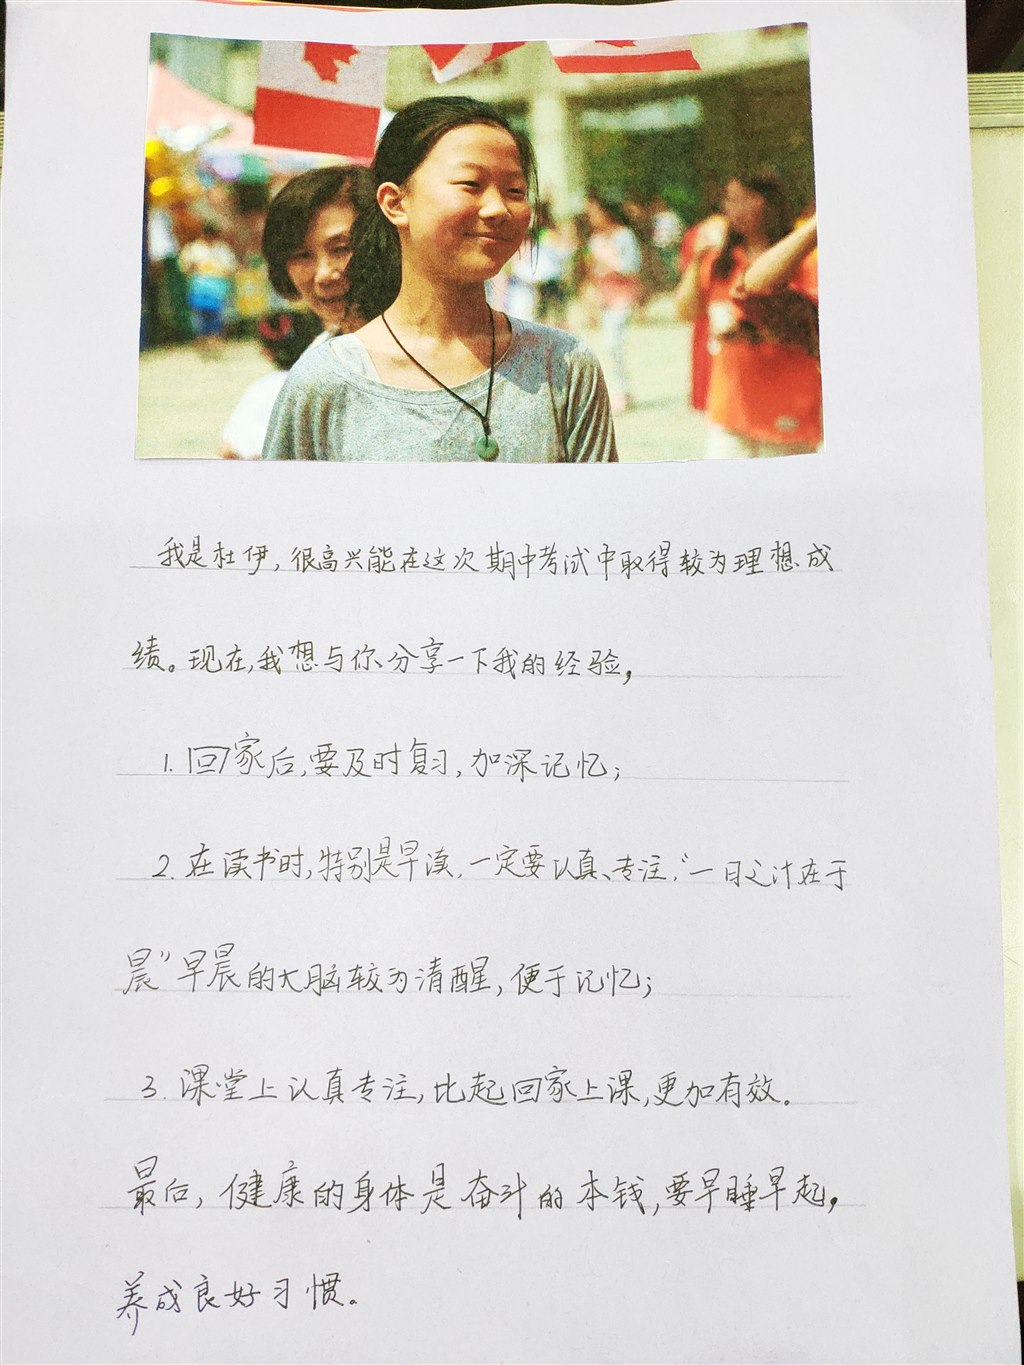 我是杜伊，很高兴能在这次期中考试中取得较为理想成
绩。现在，我想与你分享一下我的经验，
1. 回家后，要及时复习，加深记忆；
2. 在读书时，特别是早读，一定要认真、专注，“一日之计在于
晨”早晨的大脑较为清醒，便于记忆；
3. 课堂上认真专注，比起回家上课，更加有效。
最后，健康的身体是奋斗的本钱，要早睡早起，
养成良好习惯。